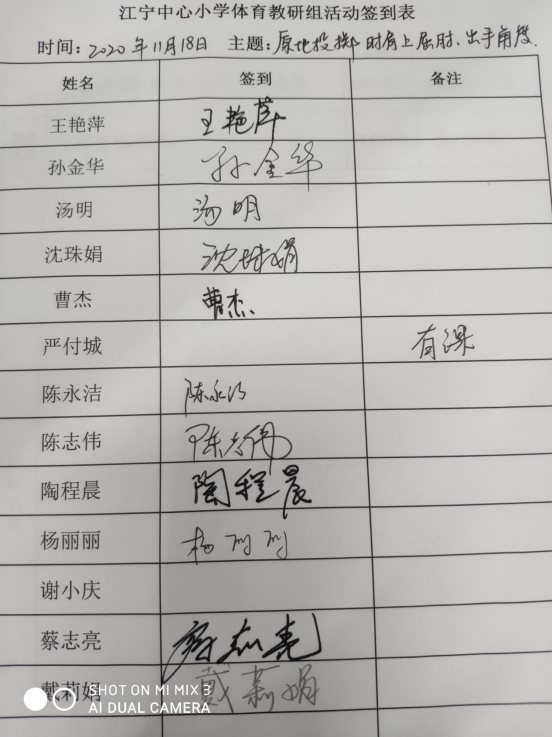 江宁中心小学体育教研组活动签到表
时间：2020年11月18日 主题：原地投掷时肩上屈肘、出手角度
姓名 签到 备注
王艳萍 王艳萍
孙金华 孙金华
汤明 汤明
沈珠娟 沈珠娟
曹杰 曹杰
严付城 有课
陈永洁 陈永洁
陈志伟 陈志伟
陶程晨 陶程晨
杨丽丽 杨丽丽
谢小庆
蔡志亮 蔡志亮
戴莉娟 戴莉娟
SHOT ON MI MIX 3
AI DUAL CAMERA